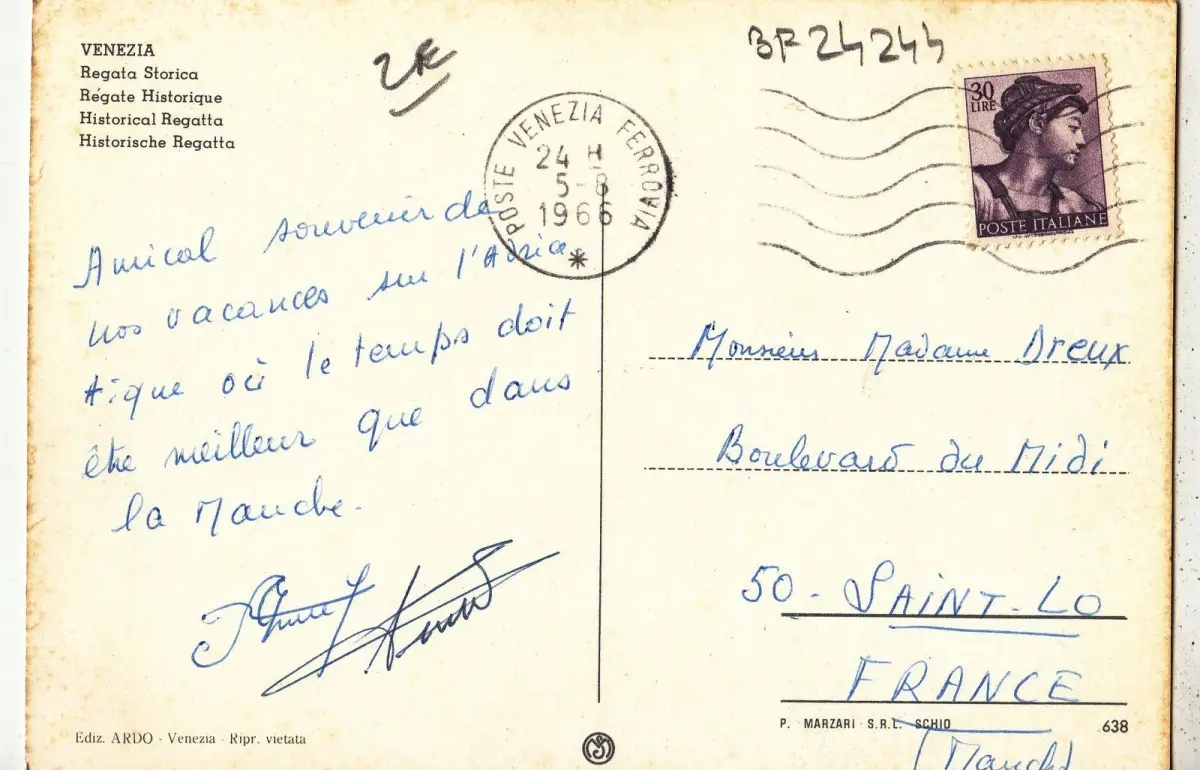 VENEZIA
Regata Storica
Régate Historique
Historical Regatta
Historische Regatta
2€
BF 24244
POSTE VENEZIA FERROVIA
24 H
5-8
1966
30
LIRE
POSTE ITALIANE
Amical souvenir de
nos vacances sur l'Adria
tique où le temps doit
être meilleur que dans
la Manche.
Monsieur Madame Dreux
Boulevard du Midi
50 - SAINT-LO
FRANCE
(Manche)
P. MARZARI S.R.L. SCHIO
638
Ediz. ARDO - Venezia - Ripr. vietata